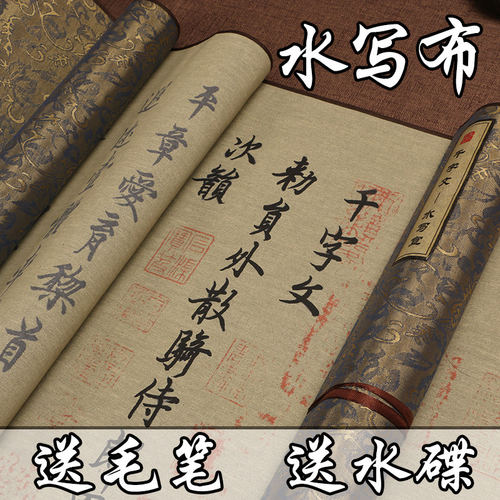 水写布
千字文—水写
千字文
勅員外散騎侍
次韻
平章愛育黎首
送毛笔 送水碟